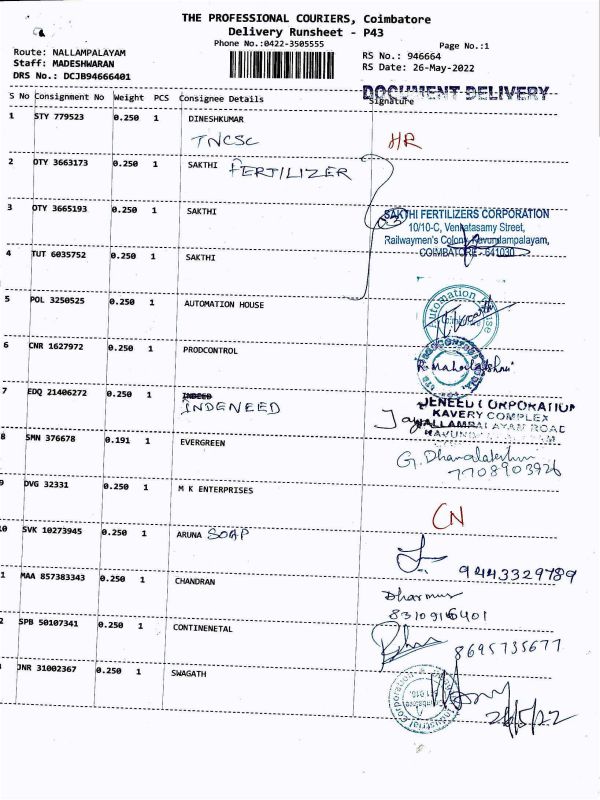 THE PROFESSIONAL COURIERS, Coimbatore
Delivery Runsheet - P43
Phone No.:0422-3505555
Page No.:1
Route: NALLAMPALAYAM
Staff: MADESHWARAN
DRS No.: DCJB94666401
RS No.: 946664
RS Date: 26-May-2022
DOCUMENT DELIVERY
S No Consignment No Weight PCS Consignee Details Signature
1 STY 779523 0.250 1 DINESHKUMAR
TNCSC HR
2 OTY 3663173 0.250 1 SAKTHI FERTILIZER
3 OTY 3665193 0.250 1 SAKTHI
SAKTHI FERTILIZERS CORPORATION
10/10-C, Venkatasamy Street,
Railwaymen's Colony, Kavundampalayam,
COIMBATORE - 641030
4 TUT 6035752 0.250 1 SAKTHI
5 POL 3250525 0.250 1 AUTOMATION HOUSE
Automation House
6 CNR 1627972 0.250 1 PRODCONTROL
7 EDQ 21406272 0.250 1 INDEED
INDENEED
JENEED CORPORATION
KAVERY COMPLEX
NALLAMPALAYAM ROAD
8 SMN 376678 0.191 1 EVERGREEN
G. Dhanalakshmi
7708903926
9 DVG 32331 0.250 1 M K ENTERPRISES
CN
10 SVK 10273945 0.250 1 ARUNA SOAP
9443329789
1 MAA 857383343 0.250 1 CHANDRAN
Dharmur
8310916401
2 SPB 50107341 0.250 1 CONTINENETAL
8695735677
JNR 31002367 0.250 1 SWAGATH
Industrial Corporation
26/5/22